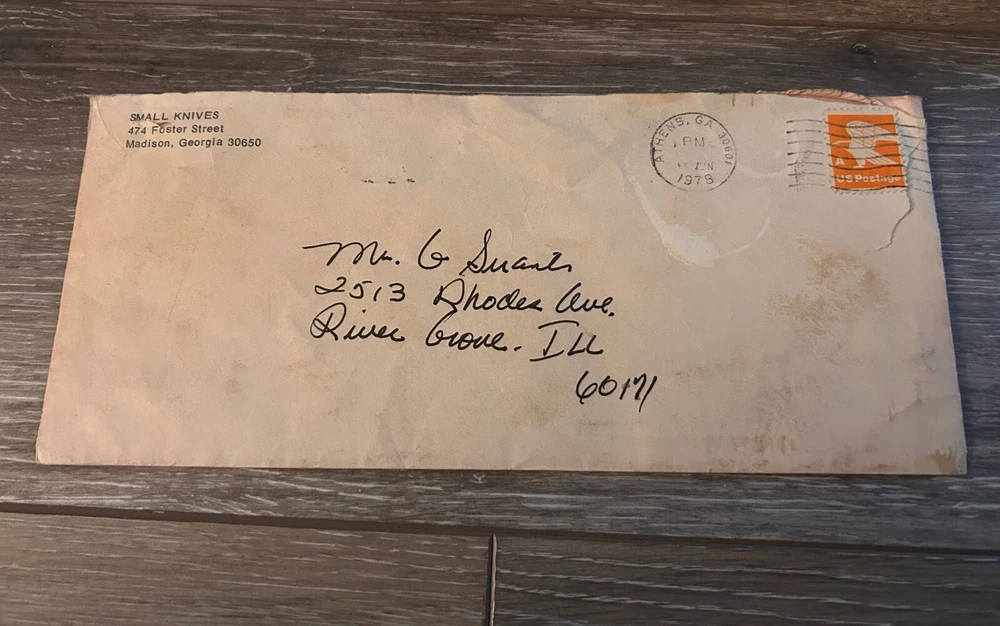 SMALL KNIVES
474 Foster Street
Madison, Georgia 30650
ATHENS, GA 30601
PM
JUN
1978
A
US Postage
Mr. G
2513 Rhodes Ave.
River Grove. Ill
60171